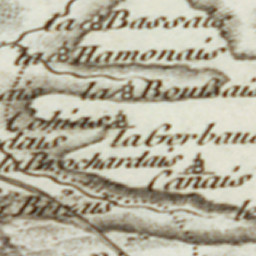 la Bassais
la Hamonais
ais la Boussais
Cohias la Gerbau
dais
la Brochardais
Canais
Bizais
le